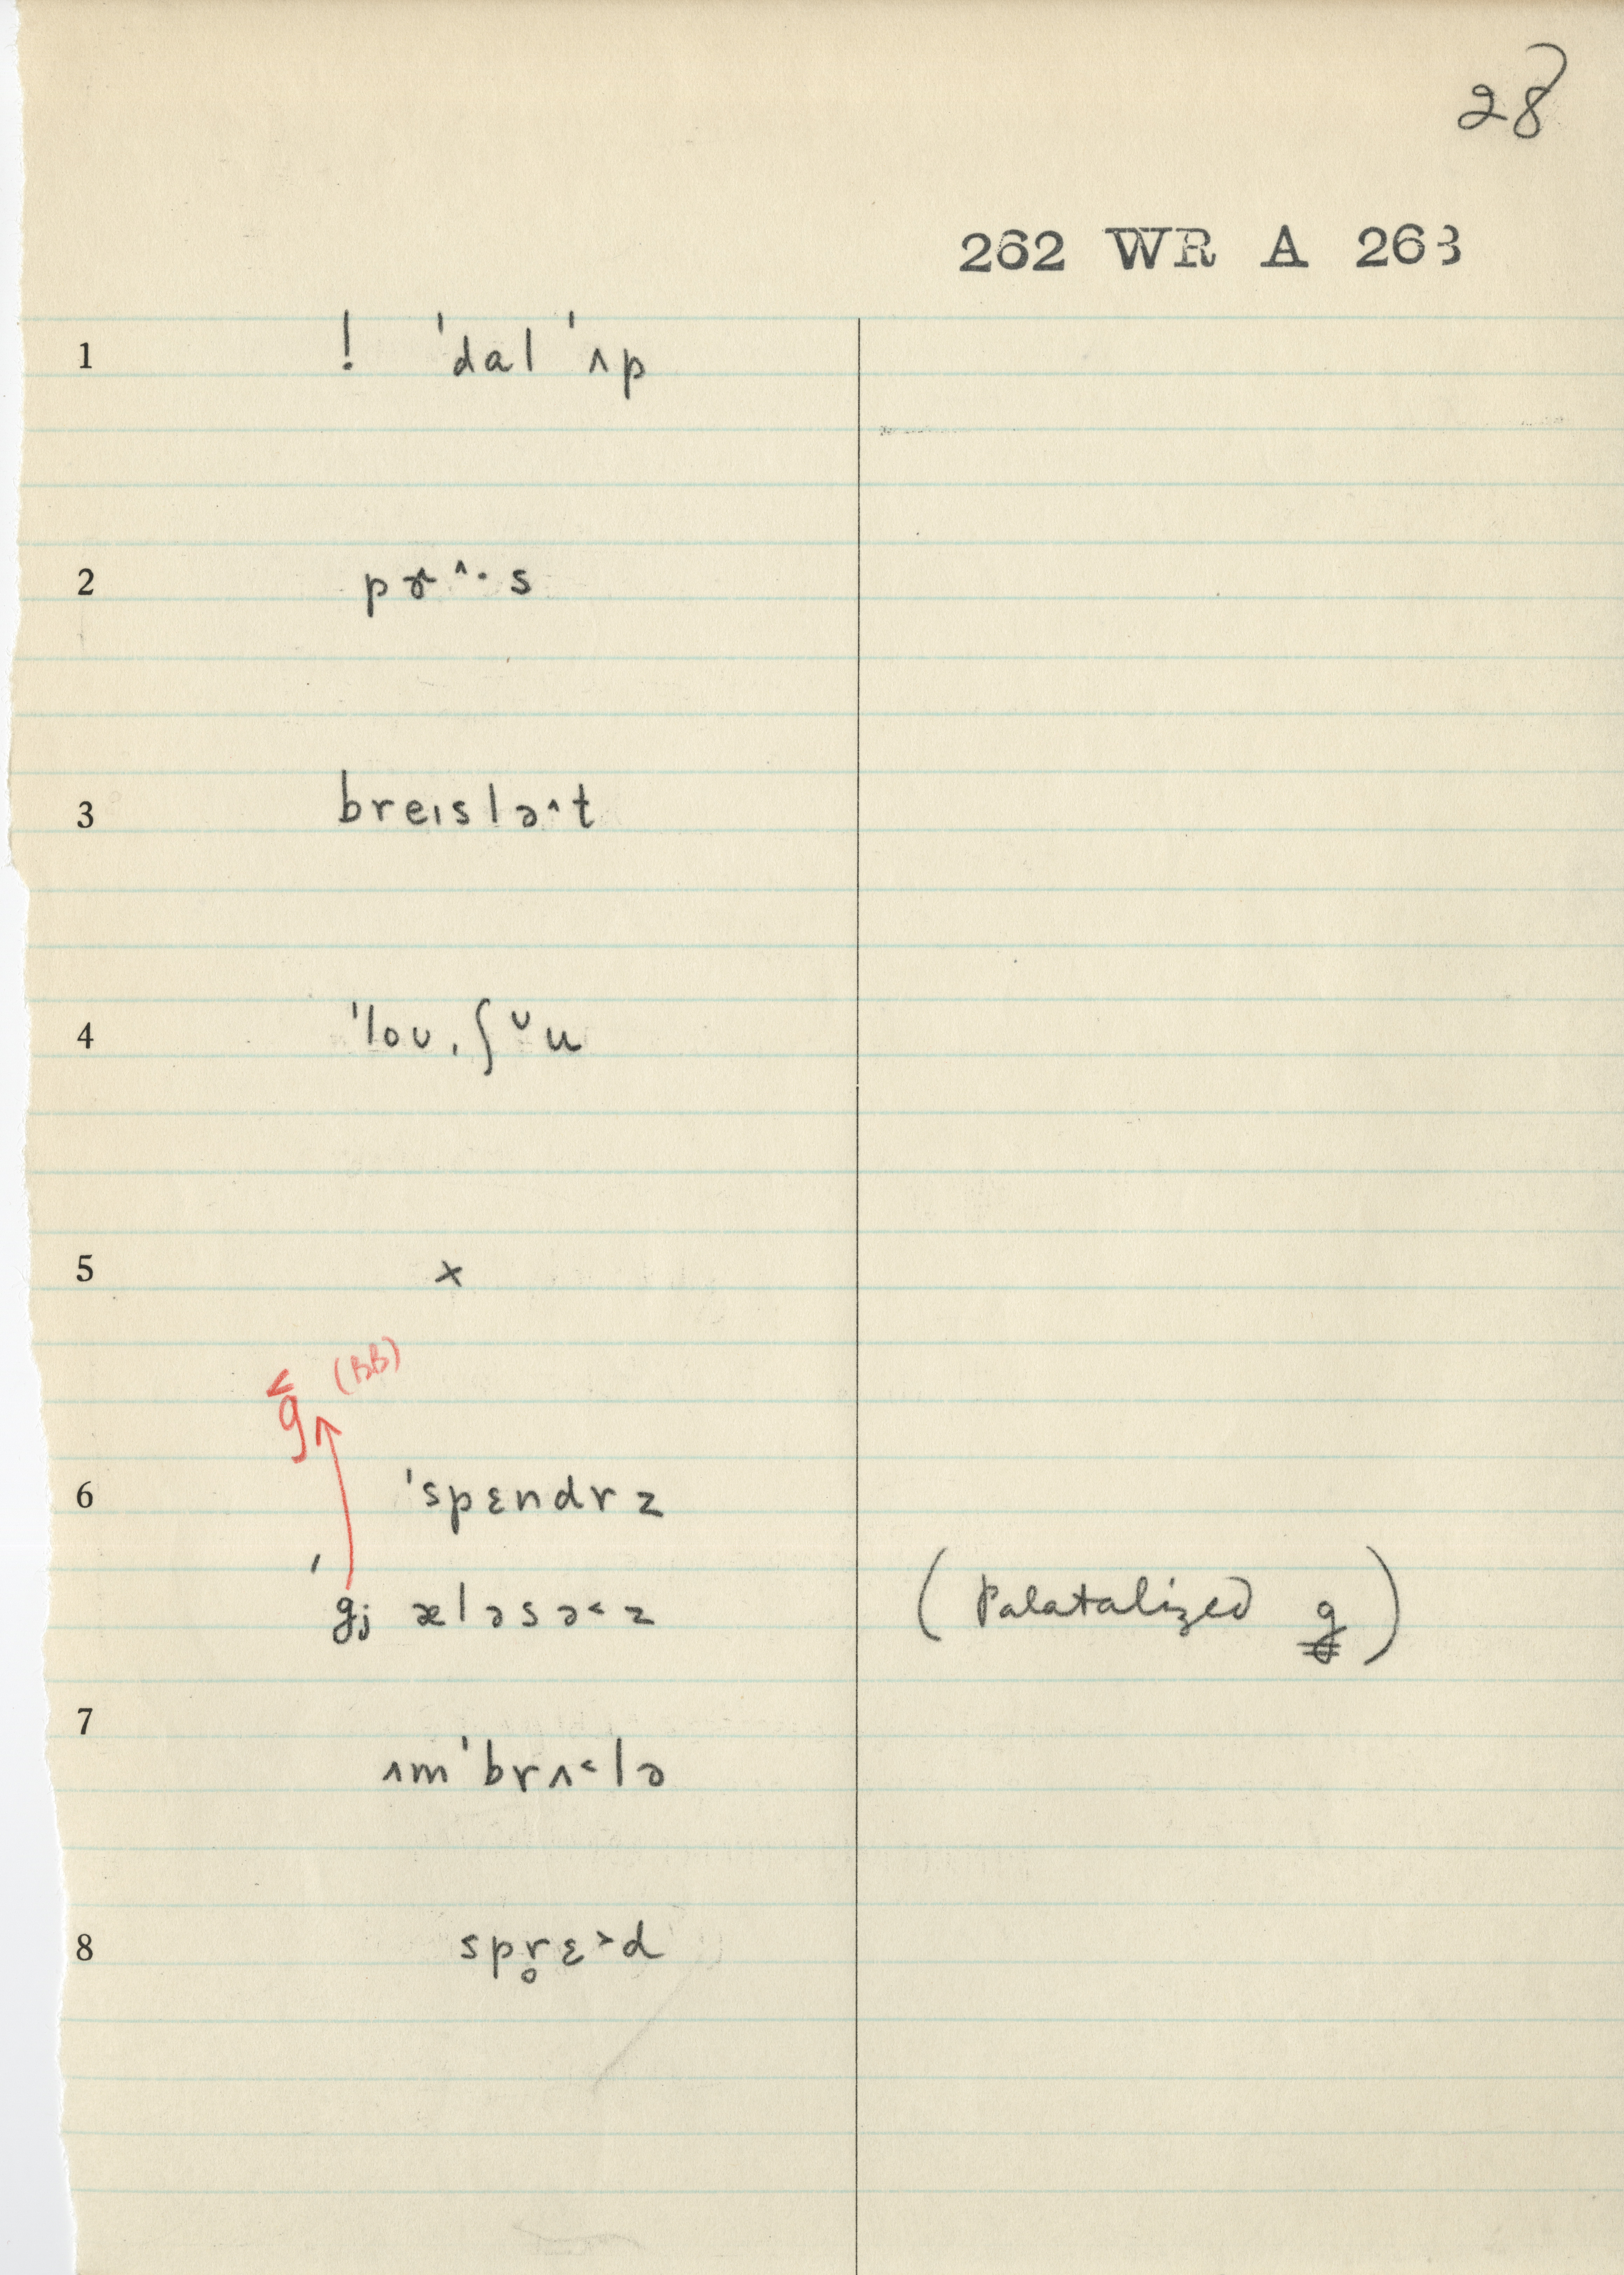 28
262 WR A 263
1 ! ˈdal ˈʌp
2 pɝ^·s
3 breɪslə^t
4 ˈloʊˌʃ ᵕu
5 x
g̬ (BB)
6 ˈspɛndrz
ˈgj æləsə˂z (Palatalized g)
7 ʌmˈbrʌ˂lə
8 spr̥ɛ˃d